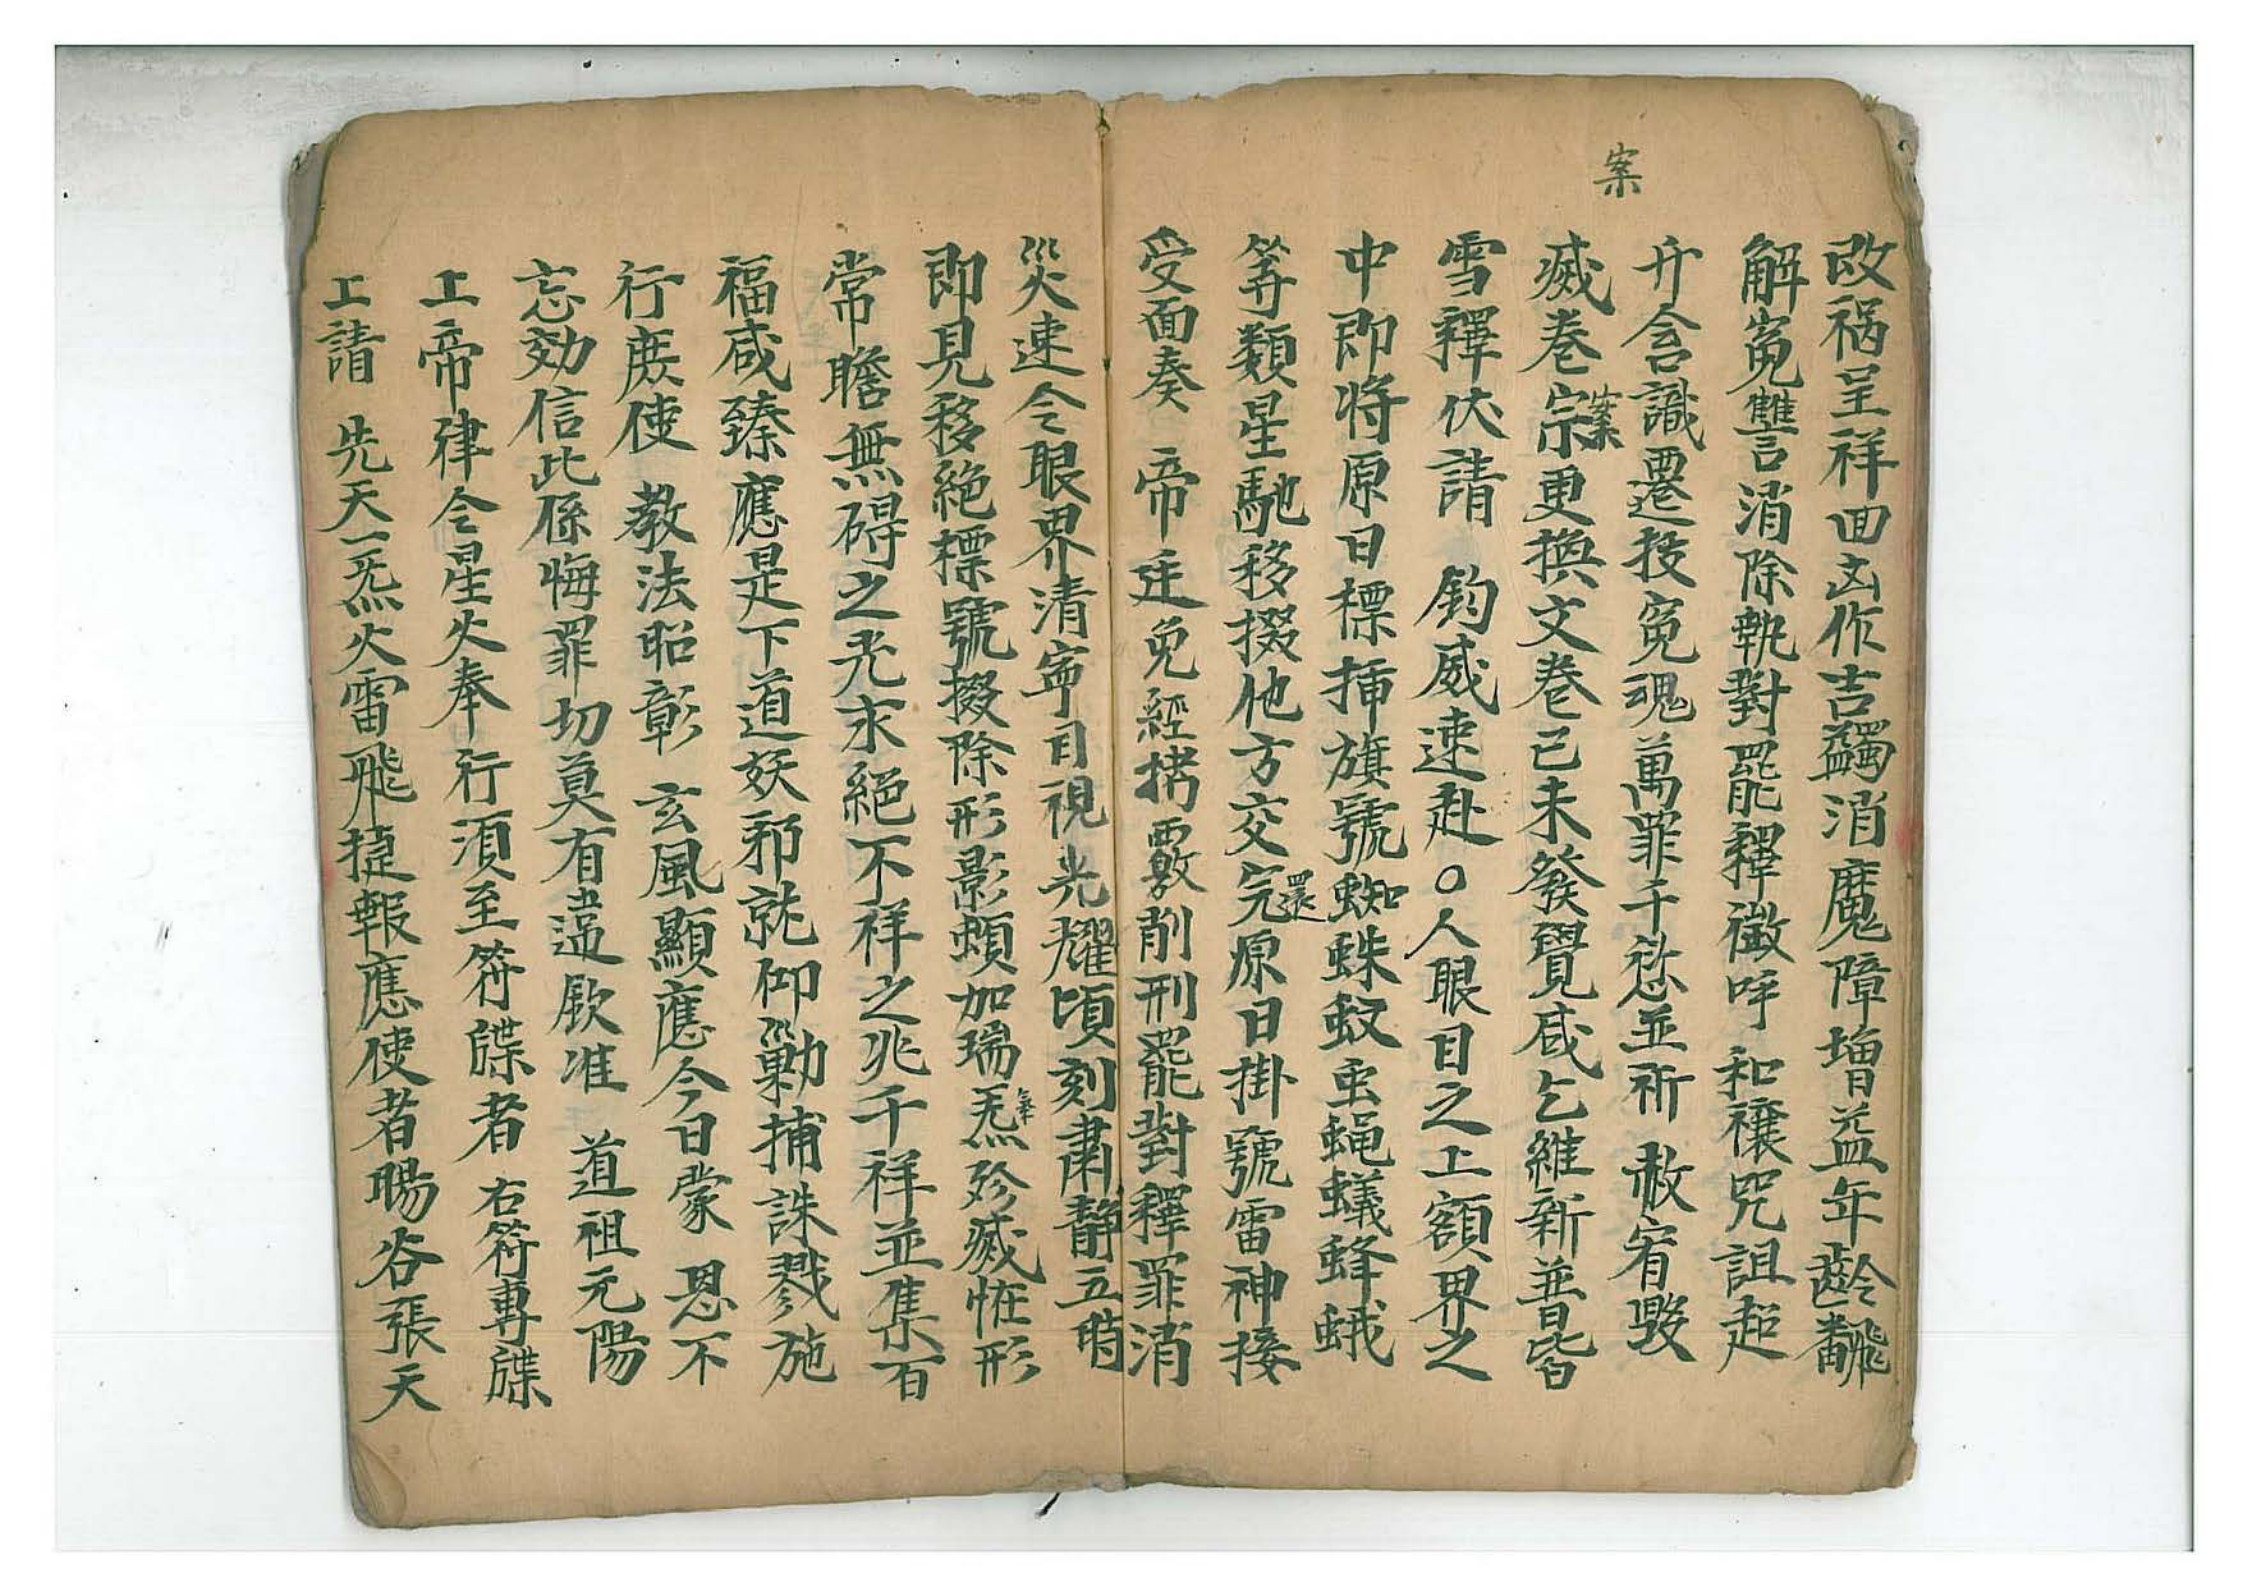 案
改祸呈祥回凶作吉蠲消魔障增益年齡飜
解寃讐消除執對罷釋徵呼 和禳咒詛超
升含識遷拔寃魂萬罪千愆並祈 赦宥毀
滅卷宗案更換文卷已未發覺咸乞維新普皆
雪釋伏請 鈞威速赴〇人眼目之上額界之
中即将原日標揷旗號蜘蛛蚊虫蝇蟻蜂蛾
等類星馳移掇他方交完還原日掛號雷神接
受面奏 帝廷免經拷覈削刑罷對釋罪消
災速令眼界清寧目視光耀頃刻肅静立時
即見移絶標號掇除形影頻加瑞炁氣殄滅恠形
常瞻無碍之光永絕不祥之兆千祥並集百
福咸臻應是下道妖邪就仰勦捕誅戮施
行庶使 教法昭彰 玄風顯應今日蒙 恩不
忘効信此係悔罪切莫有違厥准 道祖元陽
上帝律令星火奉行須至符牒者 右符專牒
上請 先天一炁火雷飛捷報應使者暘谷張天